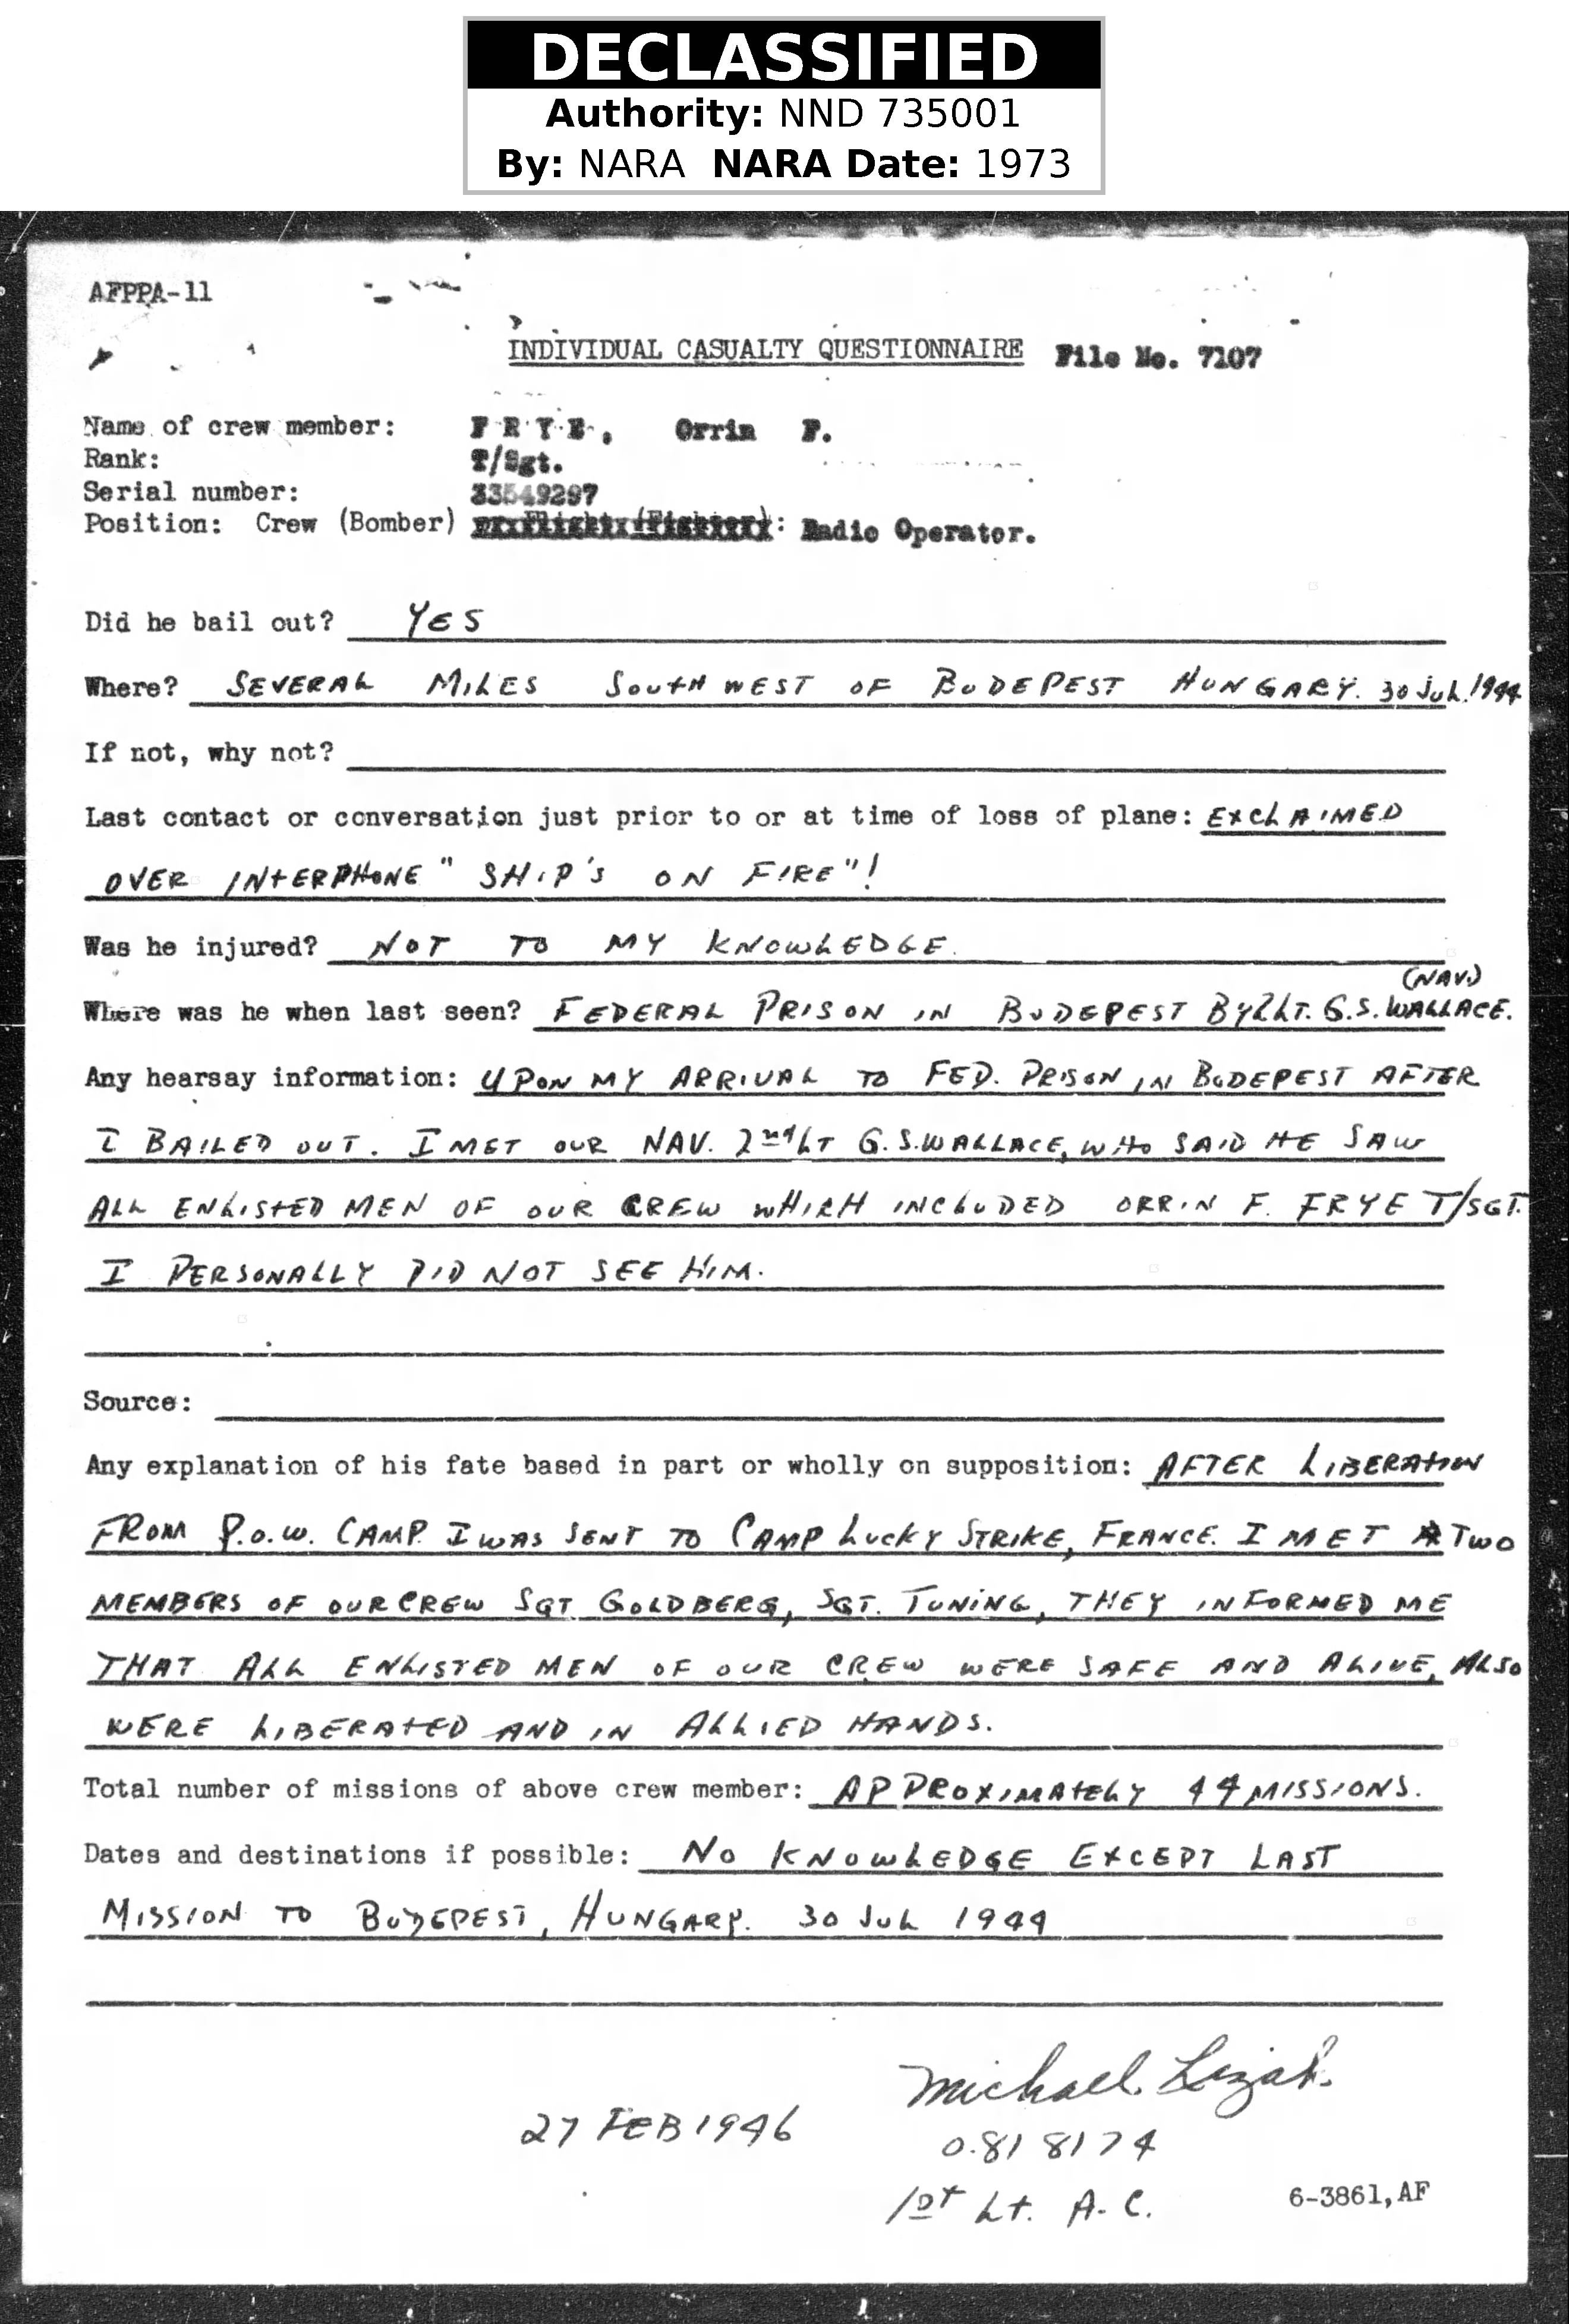 DECLASSIFIED
Authority: NND 735001
By: NARA NARA Date: 1973
AFPPA-11
INDIVIDUAL CASUALTY QUESTIONNAIRE File No. 7107
Name of crew member: F R Y E, Orrin F.
Rank: T/Sgt.
Serial number: 33549297
Position: Crew (Bomber) : Radio Operator.
Did he bail out? YES
Where? SEVERAL MILES SOUTHWEST OF BUDEPEST HUNGARY. 30 JUL. 1944
If not, why not?
Last contact or conversation just prior to or at time of loss of plane: EXCLAIMED
OVER INTERPHONE "SHIP'S ON FIRE"!
Was he injured? NOT TO MY KNOWLEDGE.
(NAV.)
Where was he when last seen? FEDERAL PRISON IN BUDEPEST BY 2LT. G.S. WALLACE.
Any hearsay information: UPON MY ARRIVAL TO FED. PRISON IN BUDEPEST AFTER
I BAILED OUT. I MET OUR NAV. 2nd LT G.S. WALLACE, WHO SAID HE SAW
ALL ENLISTED MEN OF OUR CREW WHICH INCLUDED ORRIN F. FRYE T/SGT.
I PERSONALLY DID NOT SEE HIM.
Source:
Any explanation of his fate based in part or wholly on supposition: AFTER LIBERATION
FROM P.O.W. CAMP. I WAS SENT TO CAMP LUCKY STRIKE, FRANCE. I MET TWO
MEMBERS OF OUR CREW SGT GOLDBERG, SGT. TUNING, THEY INFORMED ME
THAT ALL ENLISTED MEN OF OUR CREW WERE SAFE AND ALIVE, ALSO
WERE LIBERATED AND IN ALLIED HANDS.
Total number of missions of above crew member: APPROXIMATELY 44 MISSIONS.
Dates and destinations if possible: NO KNOWLEDGE EXCEPT LAST
MISSION TO BUDEPEST, HUNGARY. 30 JUL 1944
Michael Lizak
27 FEB 1946
0.818174
1st Lt. A.C.
6-3861, AF